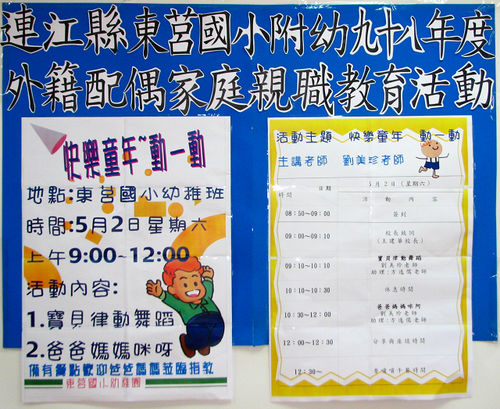 連江縣東莒國小附幼九十八年度
外籍配偶家庭親職教育活動
快樂童年~動一動
地點:東莒國小幼稚班
時間:5月2日星期六
上午9:00~12:00
活動內容:
1.寶貝律動舞蹈
2.爸爸媽媽咪呀
備有餐點歡迎爸爸媽媽蒞臨指教
東莒國小幼稚園
活動主題 快樂童年 動一動
主講老師 劉美珍老師
日期 5月2日(星期六)
時間 活動內容
08:50~09:00 簽到
09:00~09:10 校長致詞
(王建華校長)
09:10~10:10 寶貝律動舞蹈
劉美珍老師
助理:方逸儒老師
10:10~10:30 休息時間
10:30~12:00 爸爸媽媽咪呀
劉美珍老師
助理:方逸儒老師
12:00~12:30 分享與座談時間
12:30~